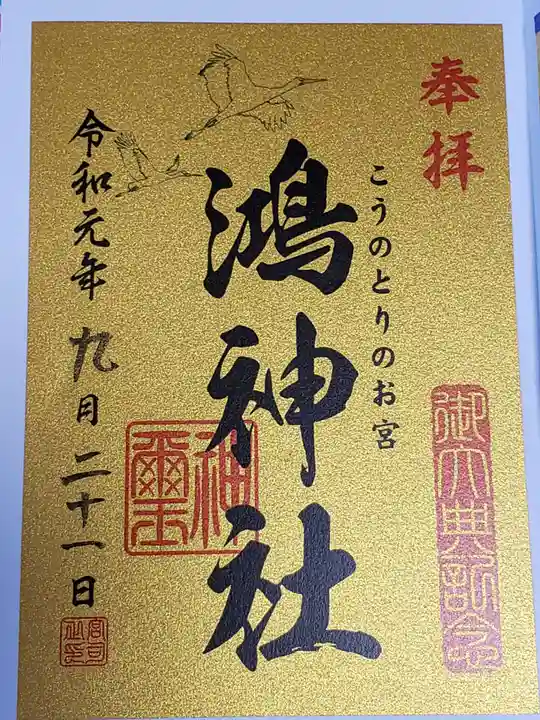 奉拝
御大典記念
こうのとりのお宮
鴻神社
神璽
令和元年九月二十一日